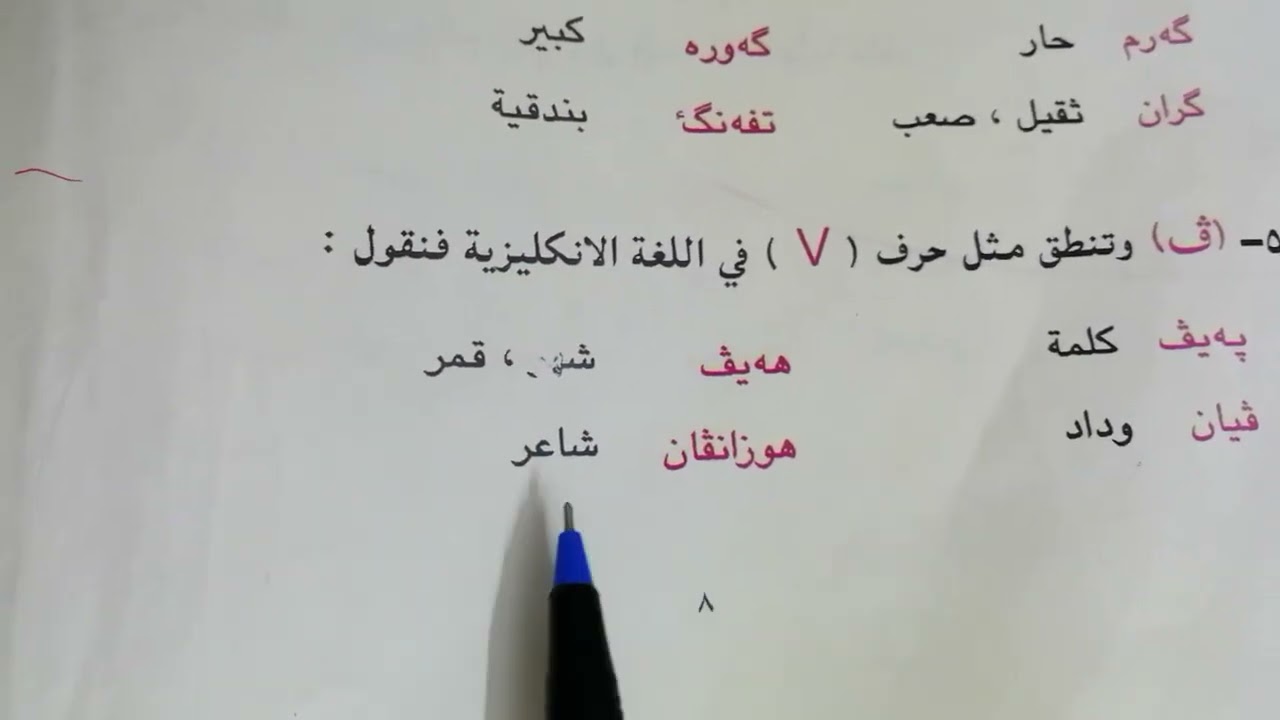 گەرم حار گەورە كبير
گران ثقيل ، صعب تفەنگ بندقية
٥- (ڤ) وتنطق مثل حرف ( V ) في اللغة الانكليزية فنقول :
پەيڤ كلمة هەيڤ ، قمر
ڤيان وداد هوزانڤان شاعر
٨